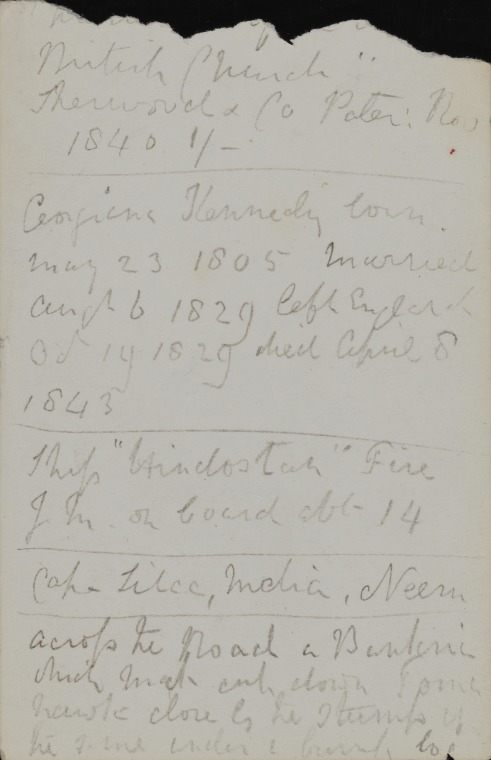 British Church"
Sherwood & Co Pater: Nos
1840 1/-
Georgiana Kennedy born
May 23 1805 Married
Augt 6 1829 left England
Oct 19 1829 died April 8
1843
Ship "Hindostan" Fire
J. M. on board abt 14
Cape Lilac, India, Neem
across the Road a
which cut down
hawk close by the Stumps of
the same under a